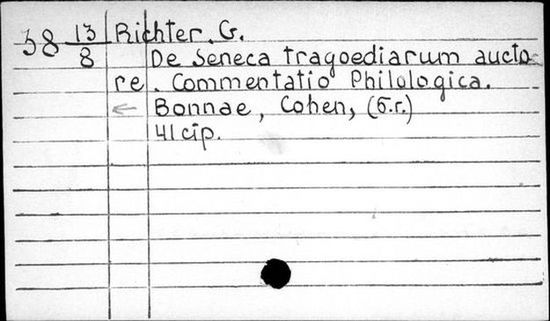 38 13/8 Richter, G.
De Seneca tragoediarum aucto
re. Commentatio Philologica.
← Bonnae, Cohen, (б.г.)
41 стр.